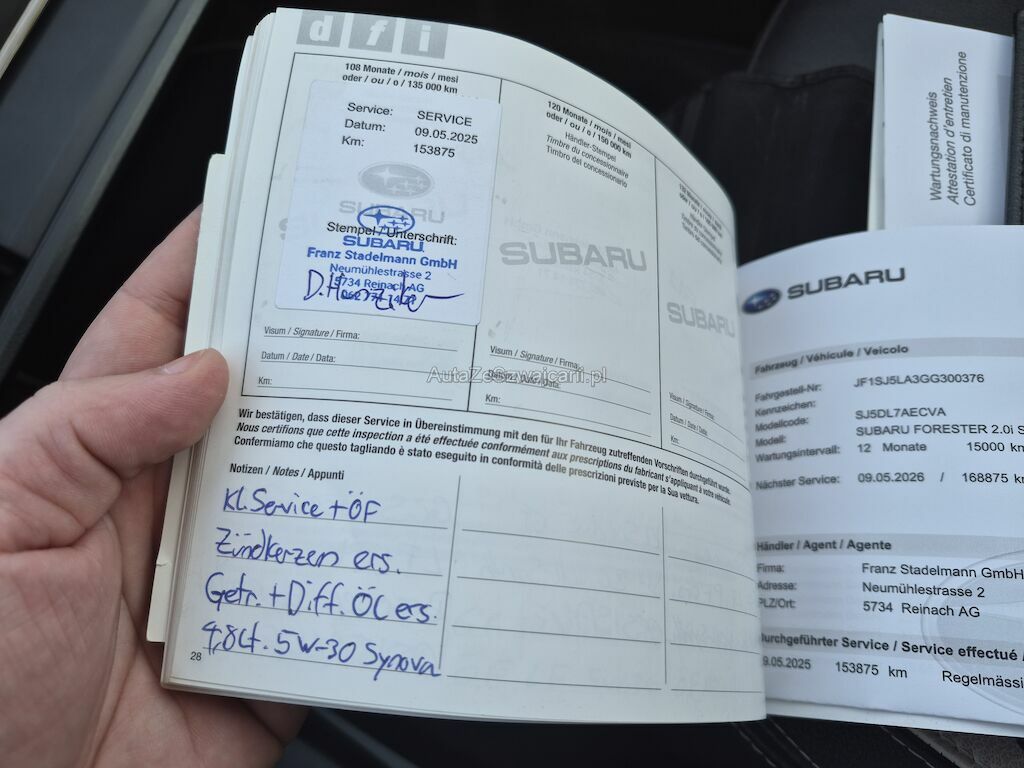 dfi
108 Monate / mois / mesi
oder / ou / o / 135 000 km
Service: SERVICE
Datum: 09.05.2025
Km: 153875
SUBARU
Stempel / Unterschrift:
SUBARU
Franz Stadelmann GmbH
Neumühlestrasse 2
5734 Reinach AG
Visum / Signature / Firma:
Datum / Date / Data:
Km:
120 Monate / mois / mesi
oder / ou / o / 150 000 km
Händler-Stempel
Timbre du concessionnaire
Timbro del concessionario
SUBARU
Visum / Signature / Firma:
Datum / Date / Data:
Km:
SUBARU
Visum / Signature / Firma:
Datum / Date / Data:
Km:
AutaZeSzwajcarii.pl
Wir bestätigen, dass dieser Service in Übereinstimmung mit den für Ihr Fahrzeug zutreffenden Vorschriften durchgeführt wurde.
Nous certifions que cette inspection a été effectuée conformément aux prescriptions du fabricant s'appliquant à votre véhicule.
Confermiamo che questo tagliando è stato eseguito in conformità delle prescrizioni previste per la Sua vettura.
Notizen / Notes / Appunti
Kl. Service + ÖF
Zündkerzen ers.
Getr. + Diff. ÖL ers.
4,8Lt. 5W-30 Synova
28
Wartungsnachweis
Attestation d'entretien
Certificato di manutenzione
SUBARU
Fahrzeug / Véhicule / Veicolo
Fahrgestell-Nr: JF1SJ5LA3GG300376
Kennzeichen:
Modellcode: SJ5DL7AECVA
Modell: SUBARU FORESTER 2.0i S
Wartungsintervall: 12 Monate 15000 km
Nächster Service: 09.05.2026 / 168875 km
Händler / Agent / Agente
Firma: Franz Stadelmann GmbH
Adresse: Neumühlestrasse 2
PLZ/Ort: 5734 Reinach AG
durchgeführter Service / Service effectué /
09.05.2025 153875 km Regelmässi